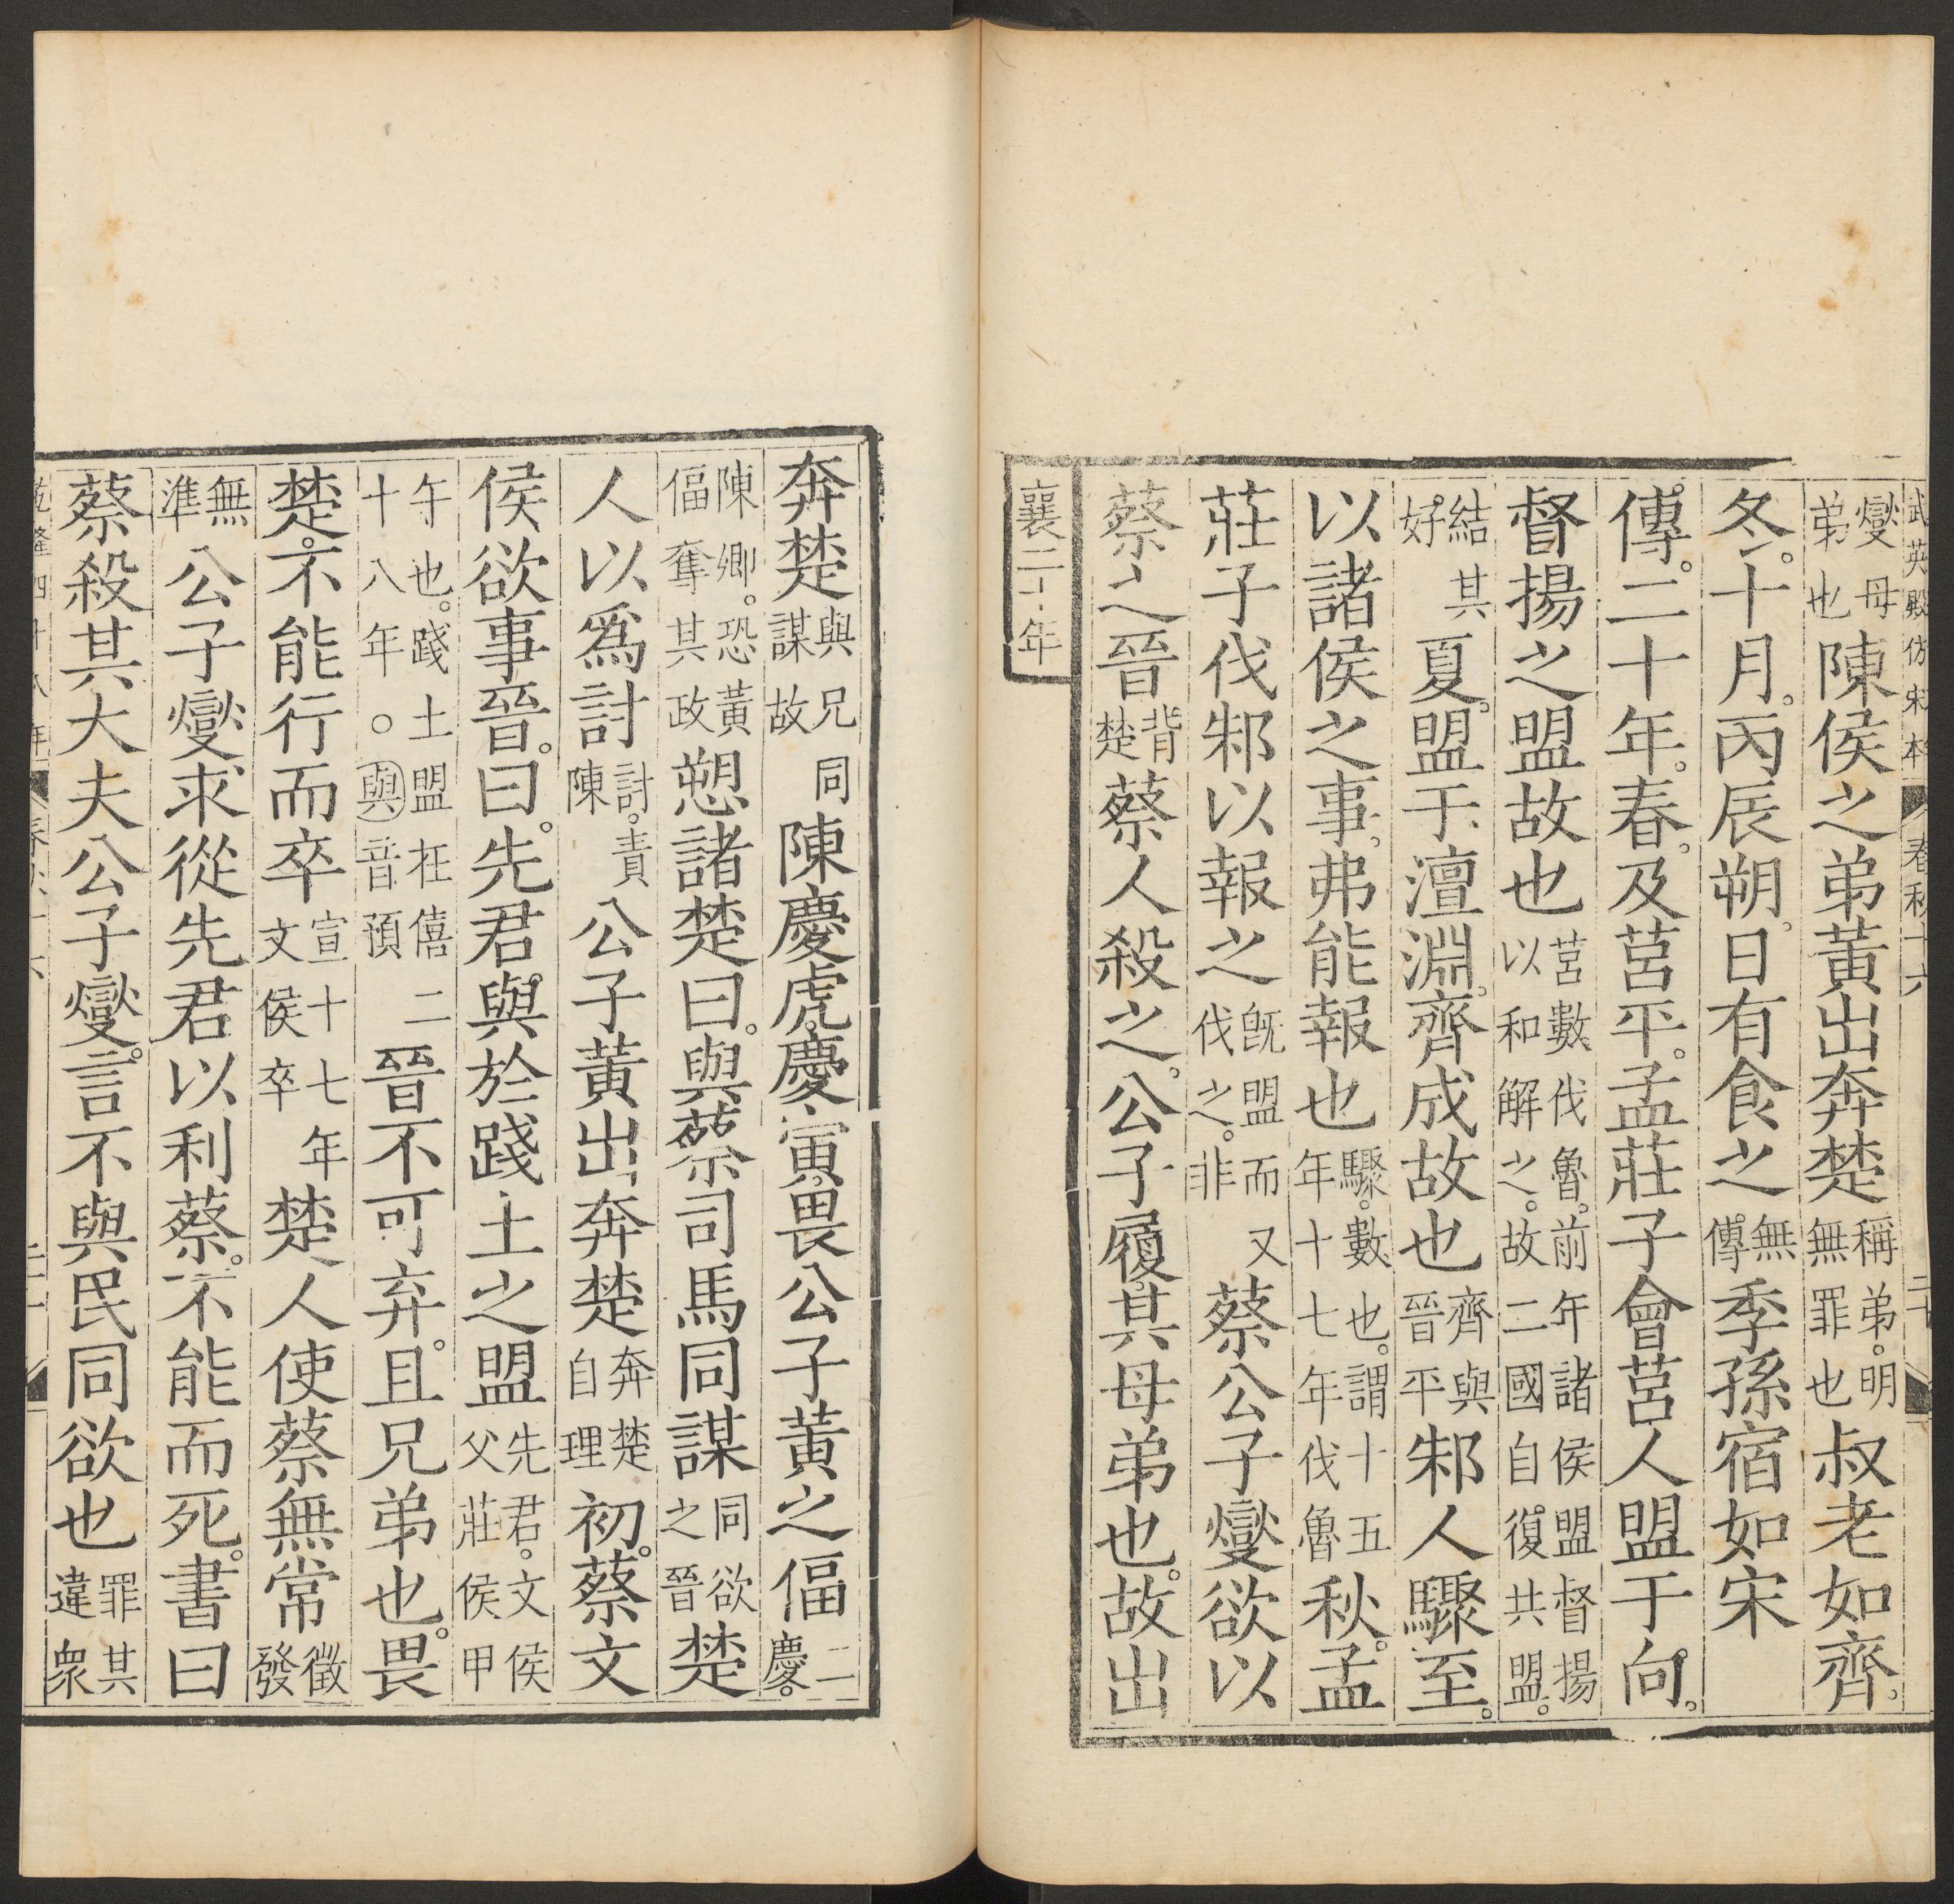 武英殿仿宋本 春秋十六 二十
燮母弟也陳侯之弟黃出奔楚稱弟明無罪也叔老如齊
冬十月丙辰朔日有食之無傳季孫宿如宋
傳二十年春及莒平孟莊子會莒人盟于向
督揚之盟故也莒數伐魯前年諸侯盟督揚以和解之故二國自復共盟
結其好夏盟于澶淵齊成故也齊與晉平邾人驟至
以諸侯之事弗能報也驟數也謂十五年十七年伐魯秋孟
莊子伐邾以報之既盟而又伐之非蔡公子燮欲以
蔡之晉背楚蔡人殺之公子履其母弟也故出
襄二十年
奔楚與兄同謀故陳慶虎慶寅畏公子黃之偪二慶
陳卿恐黃偪奪其政愬諸楚曰與蔡司馬同謀同欲之晉楚
人以爲討討責陳公子黃出奔楚奔楚自理初蔡文
侯欲事晉曰先君與於踐土之盟先君文侯父莊侯甲
午也踐土盟在僖二十八年○與音預晉不可弃且兄弟也畏
楚不能行而卒宣十七年文侯卒楚人使蔡無常徵發
無準公子燮求從先君以利蔡不能而死書曰
蔡殺其大夫公子燮言不與民同欲也罪其違衆